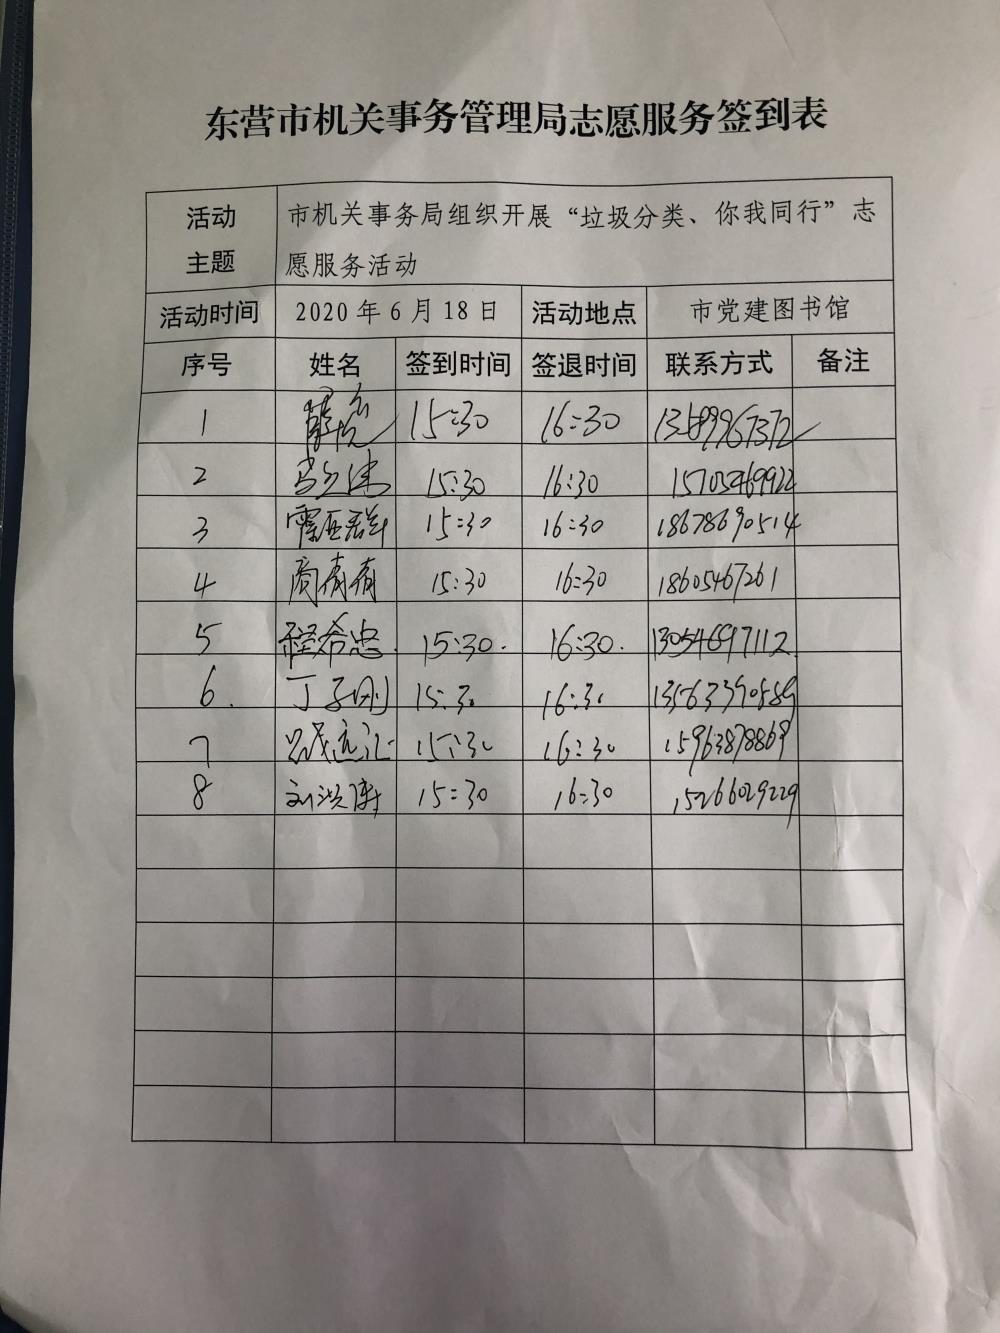 东营市机关事务管理局志愿服务签到表
活动主题 市机关事务局组织开展“垃圾分类、你我同行”志
愿服务活动
活动时间 2020年6月18日 活动地点 市党建图书馆
序号 姓名 签到时间 签退时间 联系方式 备注
1 15:30 16:30 13589967372
2 15:30 16:30 15705469922
3 15:30 16:30 18678690514
4 商倩倩 15:30 16:30 18605467261
5 程希忠. 15:30. 16:30. 13054697112.
6. 丁子刚 15:30 16:30
7 15:30 16:30 15963878869
8 刘洪涛 15:30 16:30 15266029229